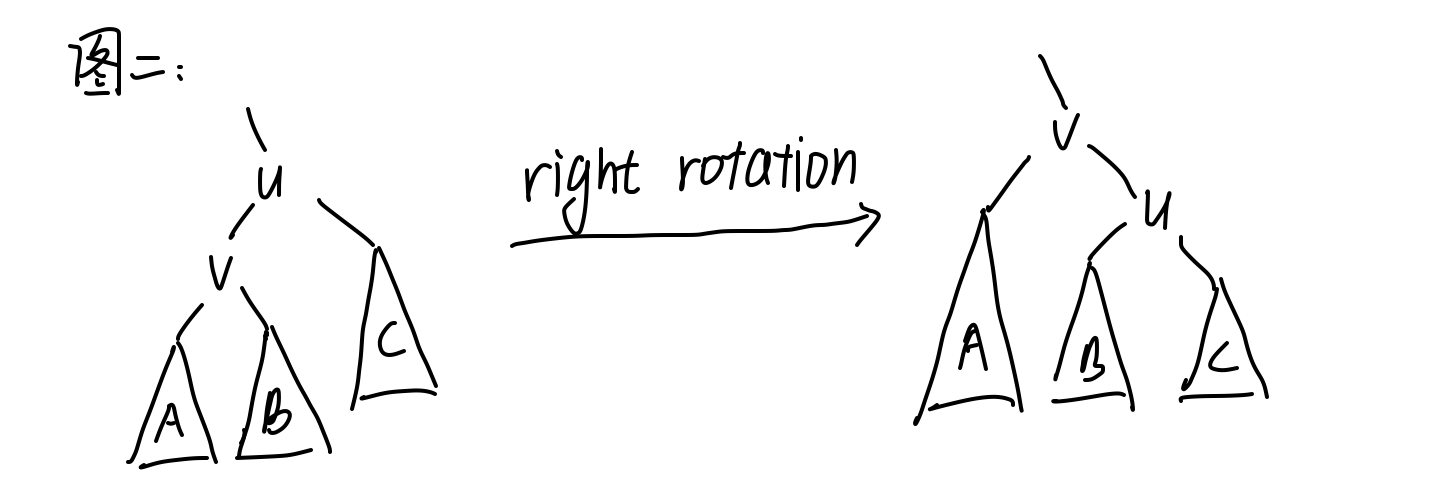 图二:
u
v
A
B
C
right rotation
v
u
A
B
C